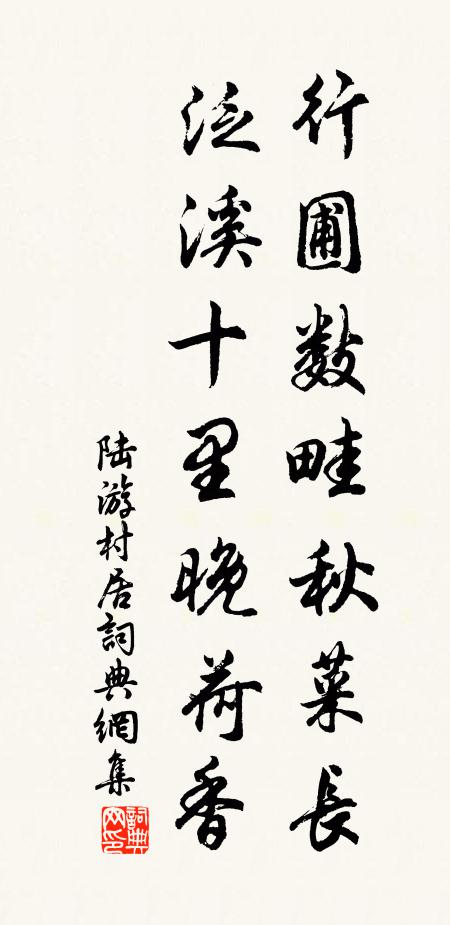 行圃数畦秋菜長
泛溪十里晚荷香
陆游村居詞典網集
詞典
网印